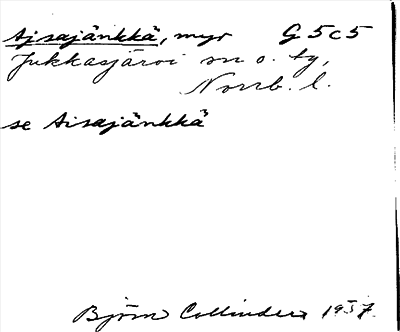 Ajsajänkkä, myr G 5 c 5
Jukkasjärvi sn o. tg,
Norrb. l.
se Aisajänkkä
Björn Collinder 1957.